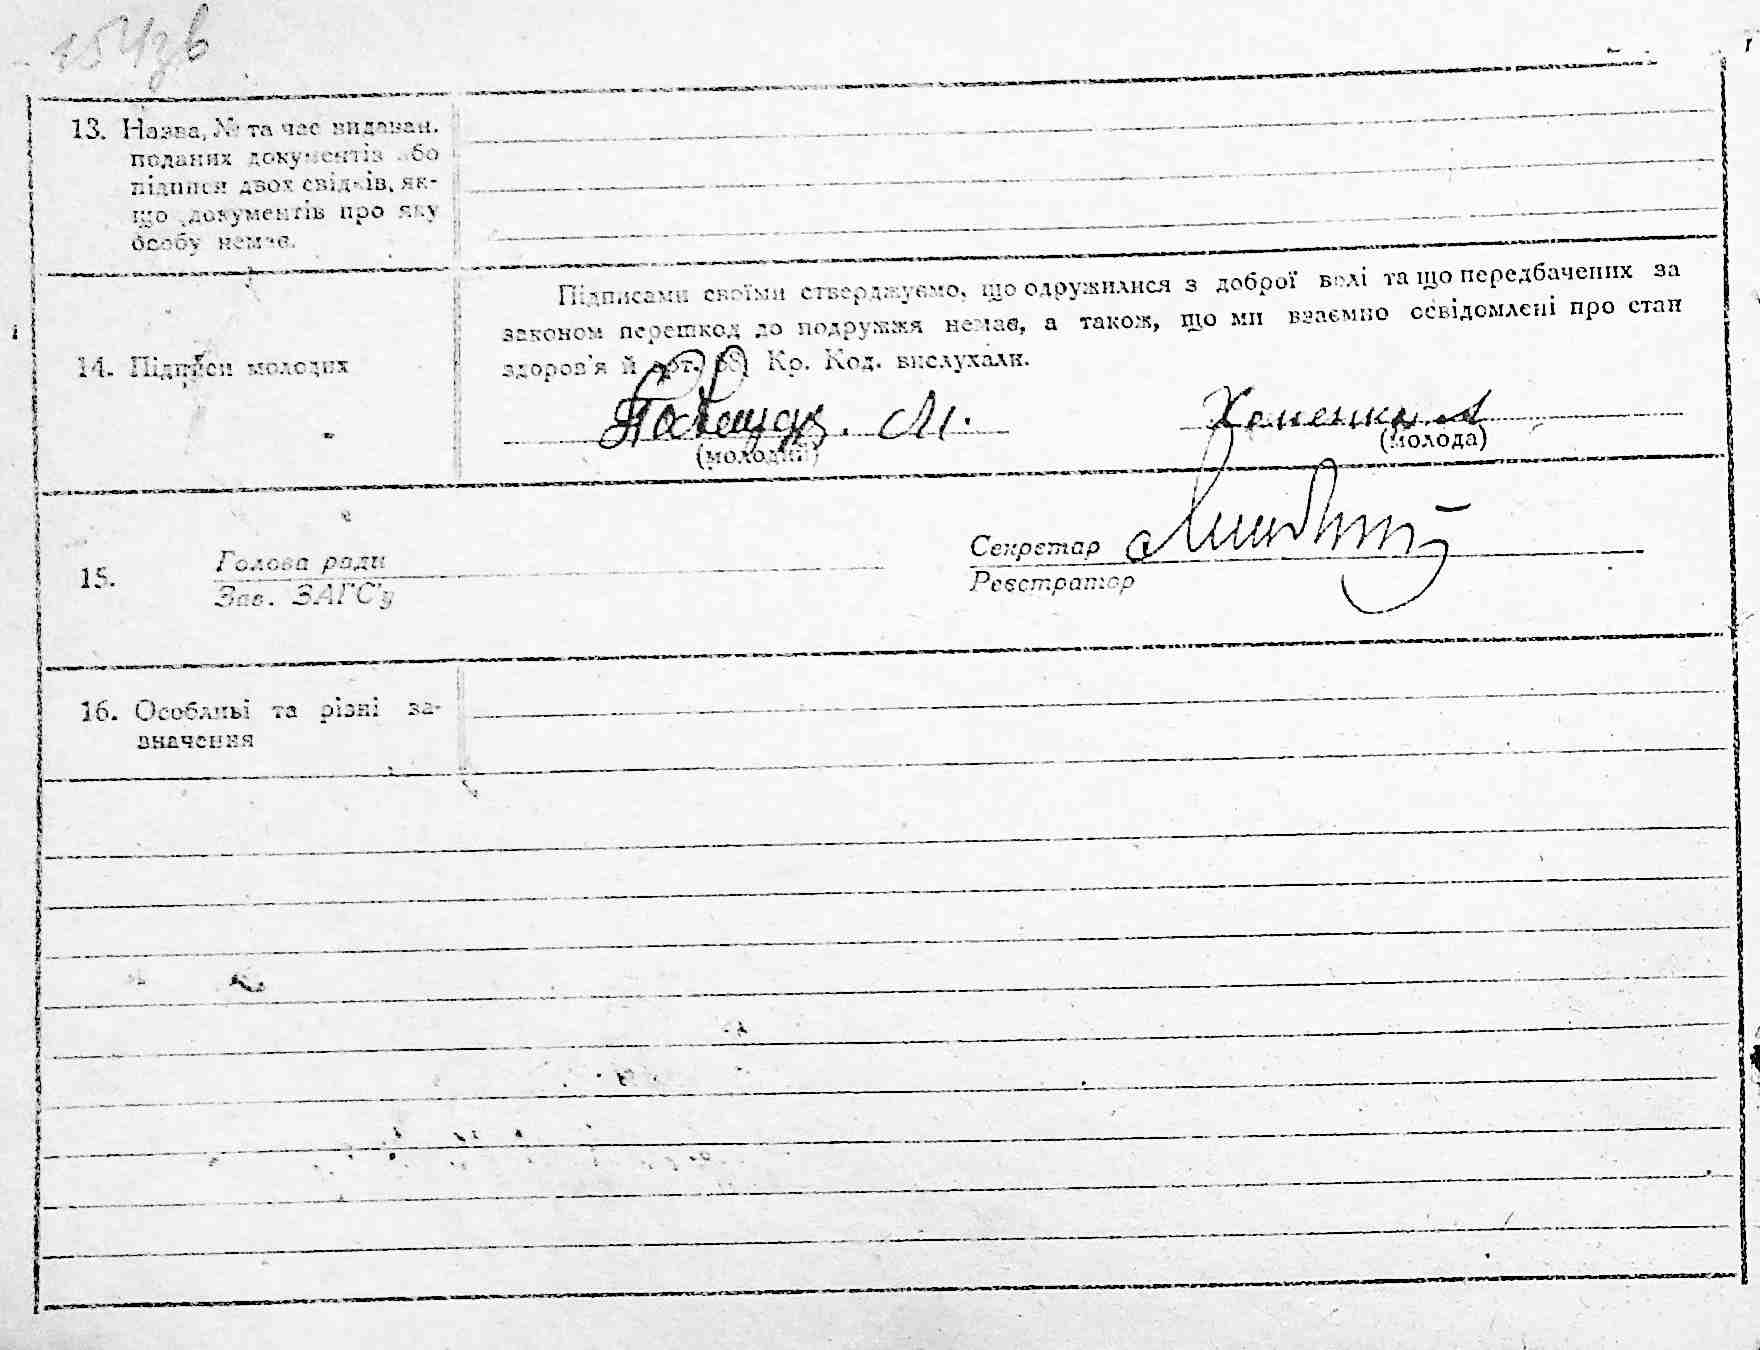 154зв
13. Назва, № та час видаван.
поданих документів або
підписи двох свідків, як-
що документів про яку
особу немає.
Підписами своїми стверджуємо, що одружилися з доброї волі та що передбачених за
законом перешкод до подружжя немає, а також, що ми взаємно освідомлені про стан
14. Підписи молодих
здоров'я й арт. 68 Кр. Код. вислухали.
М. Хоменко А
(молодий) (молода)
Голова ради Секретар
15.
Зав. ЗАГС'у Реєстратор
16. Особливі та різні за-
значення